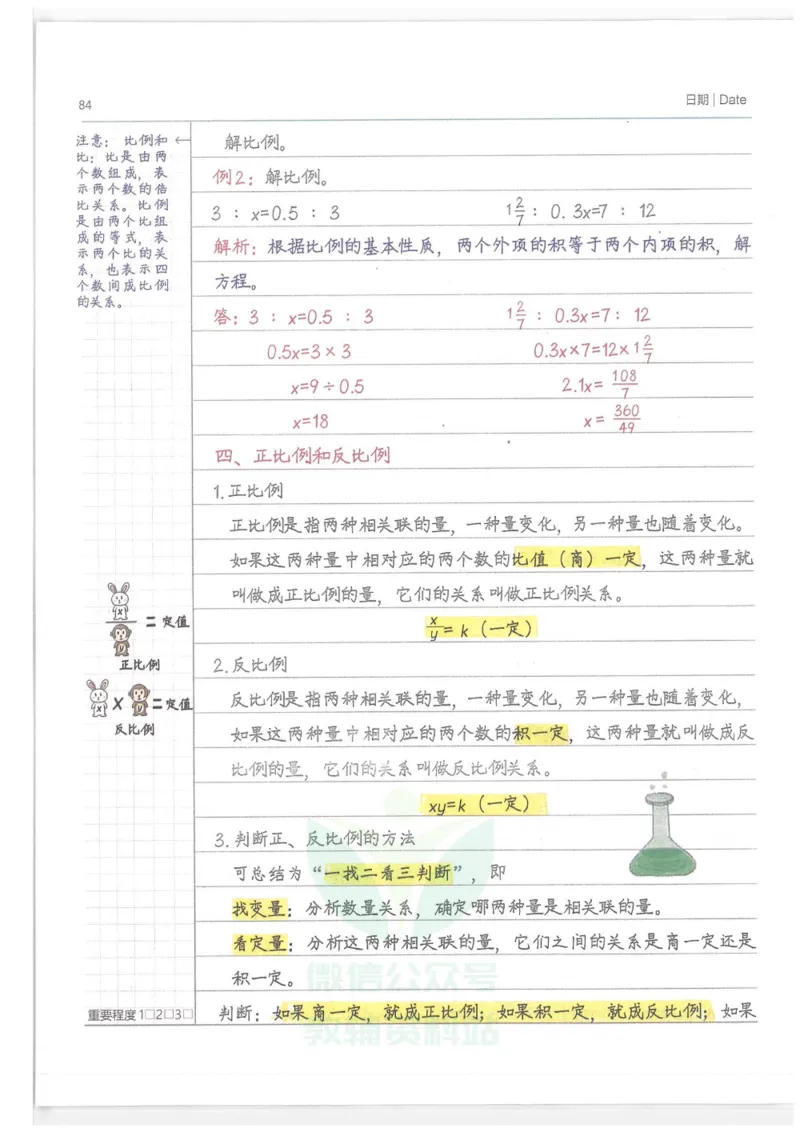 84
日期 | Date
注意：比例和
比：比是由两
个数组成，表
示两个数的倍
比关系。比例
是由两个比组
成的等式，表
示两个比的关
系，也表示四
个数间成比例
的关系。
←
解比例。
例2：解比例。
3 ：x=0.5 ：3
1 2/7：0.3x=7 ：12
解析：根据比例的基本性质，两个外项的积等于两个内项的积，解
方程。
答：3 ：x=0.5 ：3
1 2/7 ：0.3x=7：12
0.5x=3×3
0.3x×7=12×1 2/7
x=9÷0.5
2.1x= 108/7
x=18
x= 360/49
四、正比例和反比例
1.正比例
正比例是指两种相关联的量，一种量变化，另一种量也随着变化。
如果这两种量中相对应的两个数的比值（商）一定，这两种量就
叫做成正比例的量，它们的关系叫做正比例关系。
x/y = k（一定）
2.反比例
反比例是指两种相关联的量，一种量变化，另一种量也随着变化，
如果这两种量中相对应的两个数的积一定，这两种量就叫做成反
比例的量，它们的关系叫做反比例关系。
xy=k（一定）
3.判断正、反比例的方法
可总结为“一找二看三判断”，即
找变量：分析数量关系，确定哪两种量是相关联的量。
看定量：分析这两种相关联的量，它们之间的关系是商一定还是
积一定。
判断：如果商一定，就成正比例；如果积一定，就成反比例；如果
x
y
=定值
正比例
x
×
y
=定值
反比例
重要程度 1□2□3□
微信公众号
教辅资料站